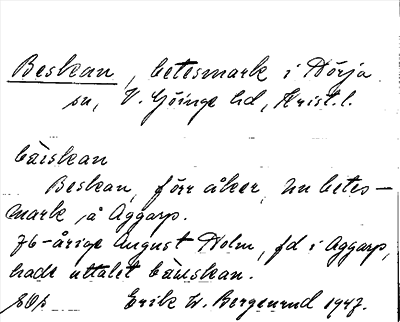 Beskan, betesmark i Nörja
sn, V. Göinge hd, Krist. l.
bäiskan
Beskan, förr åker, nu betes-
mark å Aggarp.
76-årige August Holm, fd i Aggarp,
hade uttalet bäiskan.
Erik W. Bergenrud 1947.